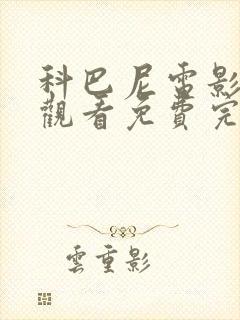 科巴尼雷影
觀看免費完
雲重影